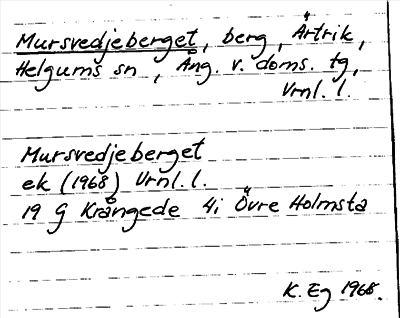 Mursvedjeberget, berg, Ärtrik,
Helgums sn, Ång. v. doms. tg,
Vrnl. l.
Mursvedjeberget
ek (1968) Vrnl. l.
19 G Krångede 4i Övre Holmsta
K. Eg 1968.